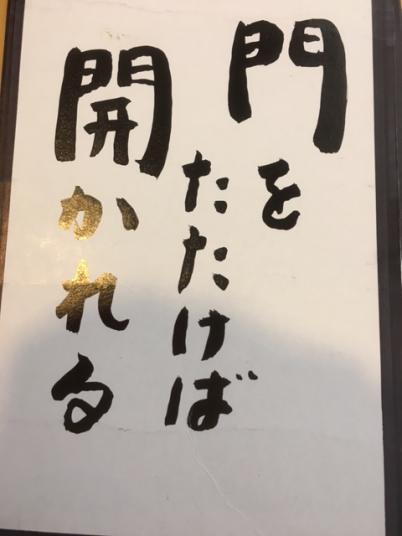 門を
たたけば
開かれる